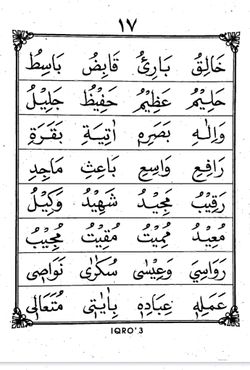 ١٧
خَالِقُ بَارِئُ قَابِضُ بَاسِطُ
حَلِيْمُ عَظِيْمُ حَفِيْظُ جَلِيْلُ
وَاِلٰهِ بَصَرِهٖ اٰتِيَةِ بَقَرَةِ
رَافِعِ وَاسِعِ بَاعِثِ مَاجِدِ
رَقِيْبُ مَجِيْدُ شَهِيْدُ وَكِيْلُ
مُعِيْدُ مُمِيْتُ مُقِيْتُ مُجِيْبُ
رَوَاسِيَ وَعِيْسٰى سُكَرٰى نَوَاصِى
عَمَلِهٖ عِبَادِهٖ بِاٰيٰتِى مُتَعَالِى
IQRO' 3